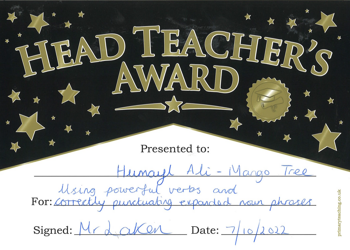 HEAD TEACHER'S
AWARD
Presented to:
Humayl Ali - Mango Tree
Using powerful verbs and
For: correctly punctuating expanded noun phrases
Signed: Mr Laken Date: 7/10/2022